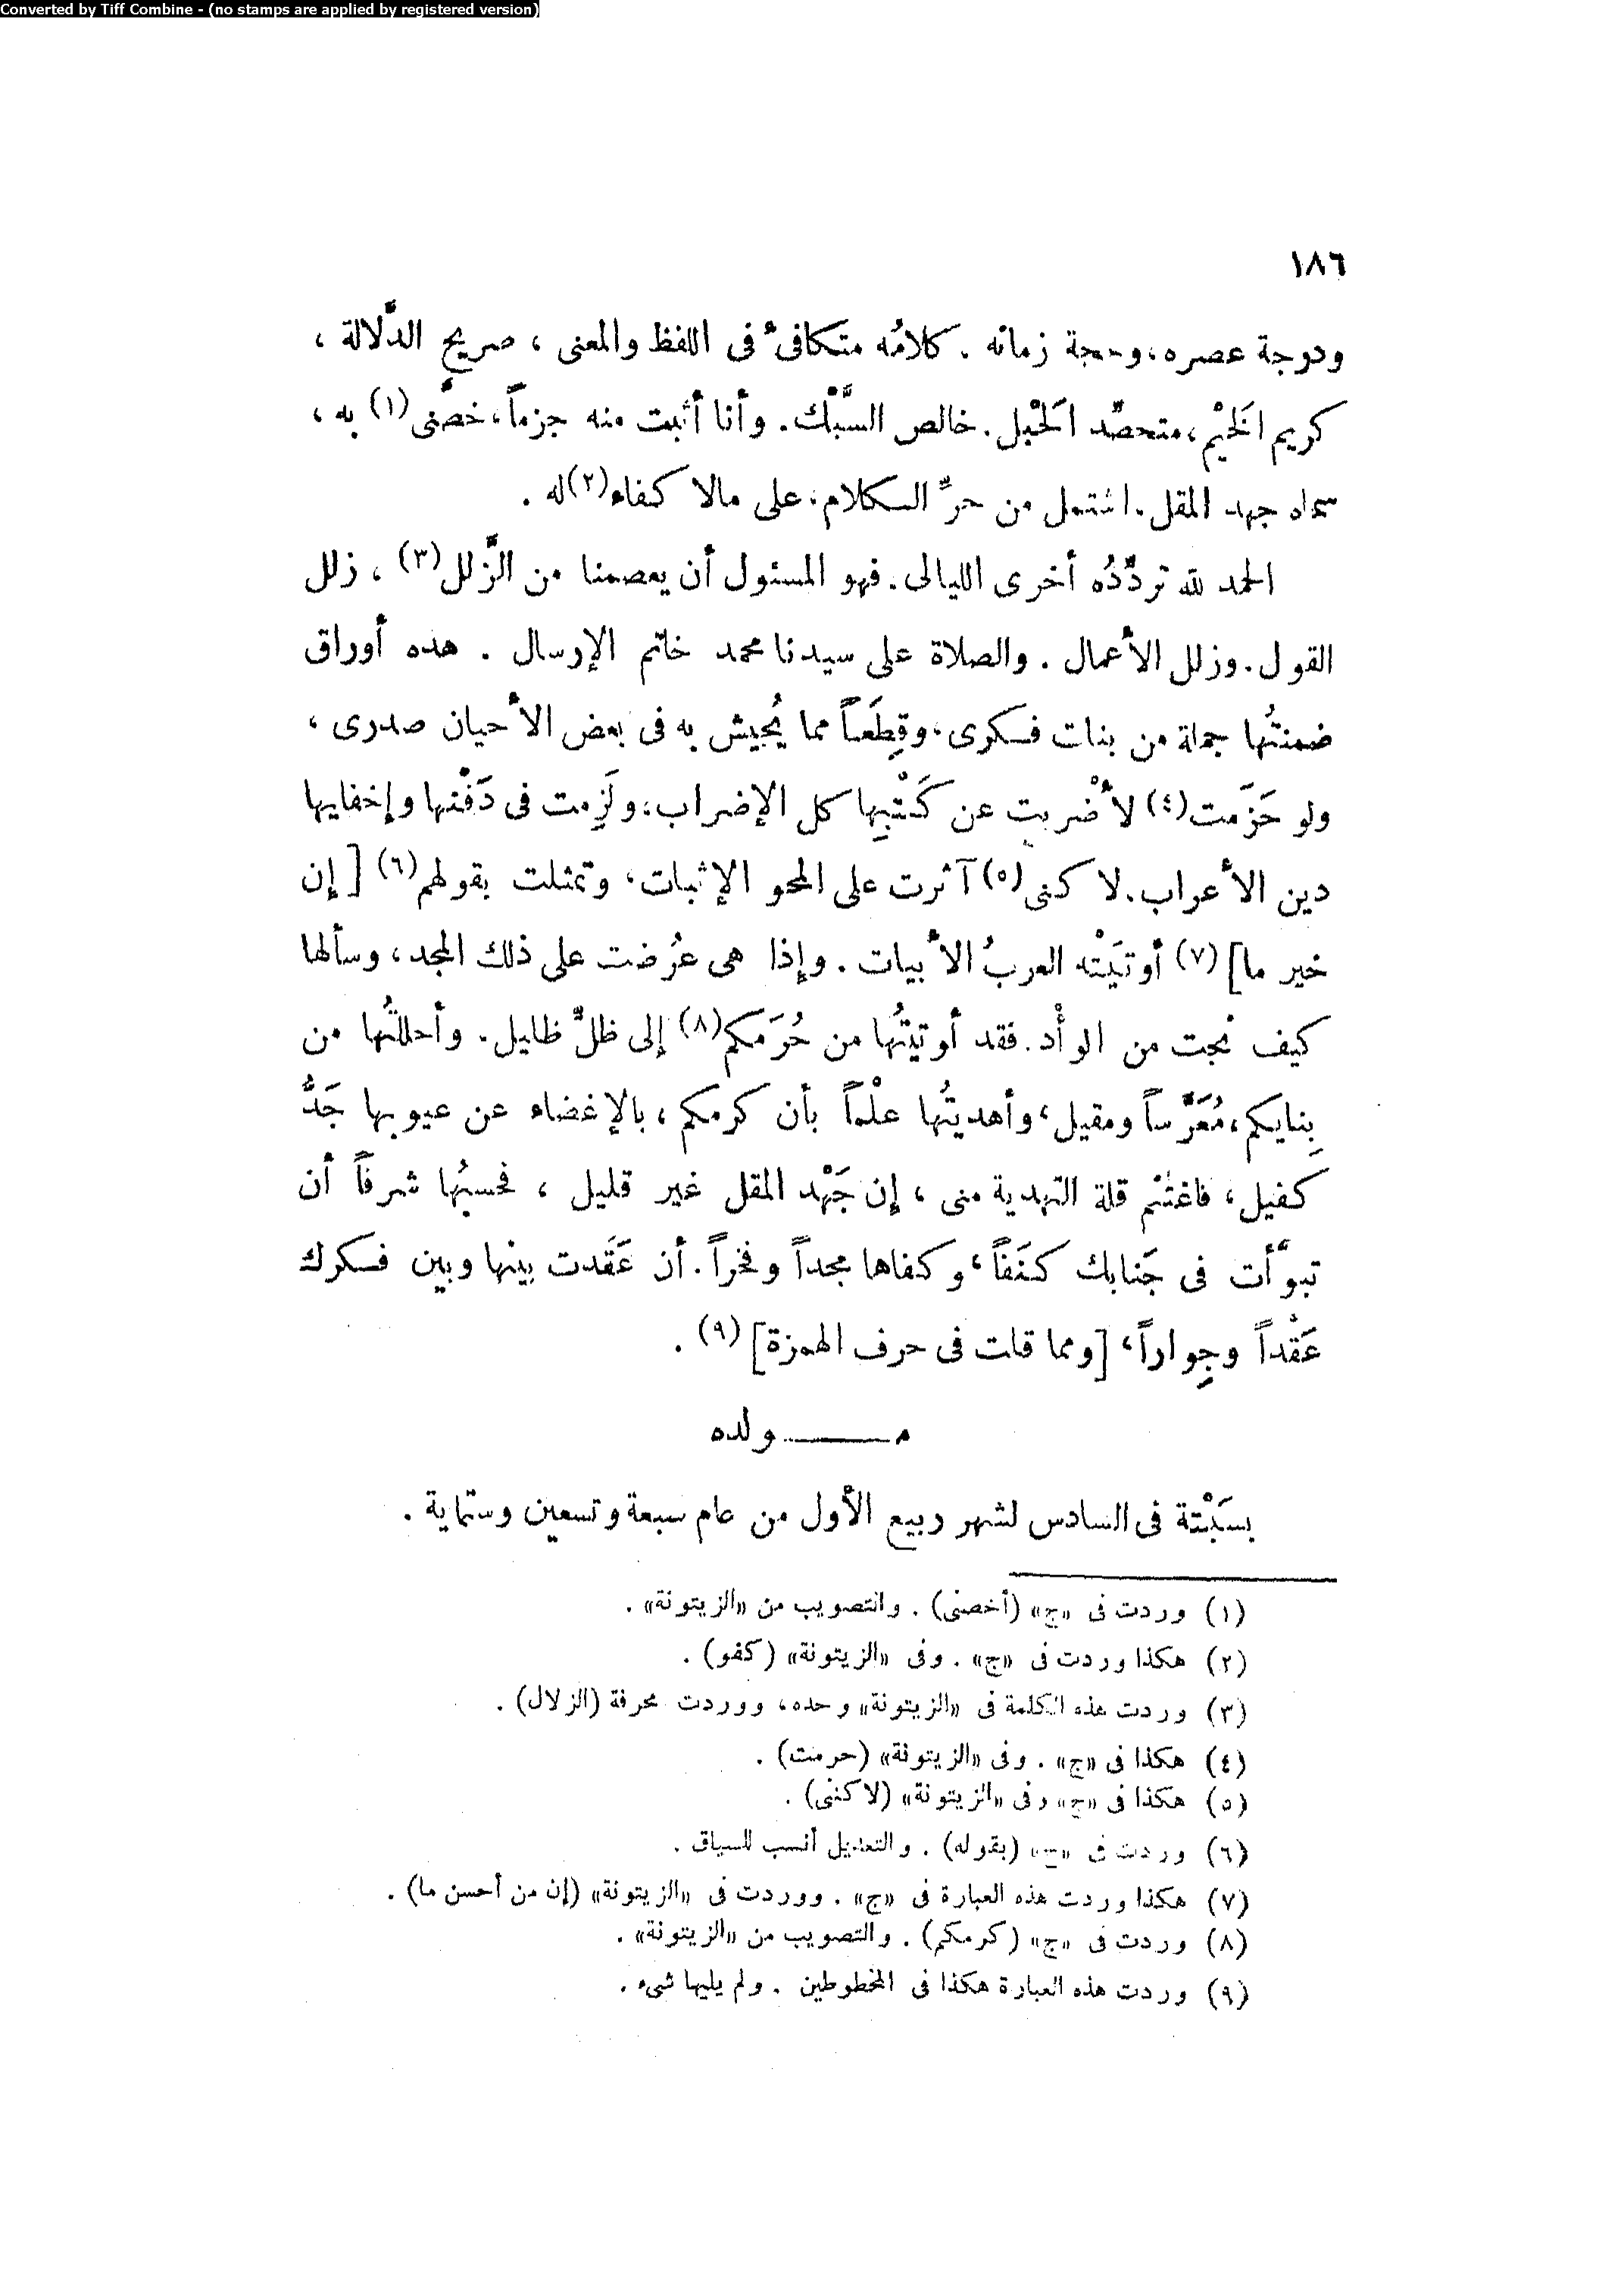 Converted by Tiff Combine - (no stamps are applied by registered version)
١٨٦
ودوحة عصره، وحجة زمانه . كلامُه متكافئٌ فى اللفظ والمعنى ، صريح الدَّلالة ،
كريم الَخيْم، متحصِّد الَحبْل. خالص السَّبْك. وأنا أثبت منه جزماً، خصَّنى (١) به ،
سماه جهد المقل. اشتمل من حرِّ الكلام، على مالا كفاء (٢) له .
الحمد لله تردِّدُه أخرى الليالى. فهو المسئول أن يعصمنا من الزَّلل (٣) ، زلل
القول. وزلل الأعمال . والصلاة على سيدنا محمد خاتم الإرسال . هذه أوراق
ضمنتُها جملة من بنات فكرى، وقِطَعاً مما يُجيش به فى بعض الأحيان صدرى ،
ولو حَزَمت (٤) لأضْربت عن كَتْبِها كل الإضراب، ولَزِمت فى دَفْنها وإخفايها
دين الأعراب. لا كنى (٥) آثرت على المحو الإثبات، وتمثلت بقولهم (٦) [إن
خير ما] (٧) أوتَيْته العربُ الأبيات . وإذا هى عُرضت على ذلك المجد ، وسألها
كيف نجت من الوأْد. فقد أوتيتُها من حُرَمكم (٨) إلى ظلٍّ ظليل. وأحللتُها من
بِنايكم، مُعَرَّساً ومقيل، وأهديتُها علْماً بأن كرمكم ، بالإغضاء عن عيوبها جَدُّ
كفيل، فاغتنْم قلة التهدية منى ، إن جَهْد المقل غير قليل ، فحسبُها شرفاً أن
تبوَّأت فى جَنابك كنَفاً، وكفاها مجداً وفخراً. أن عَقَدت بينها وبين فكرك
عَقْداً وجِواراً، [ومما قلت فى حرف الهمزة] (٩) .
مـــــولده
بسَبْتة فى السادس لشهر ربيع الأول من عام سبعة وتسعين وستماية .
(١) وردت فى «ج» (أخصنى) . والتصويب من «الزيتونة» .
(٢) هكذا وردت فى «ج» . وفى «الزيتونة» (كفو) .
(٣) وردت هذه الكلمة فى «الزيتونة» وحده، ووردت محرفة (الزلال) .
(٤) هكذا فى «ج» . وفى «الزيتونة» (حرمت) .
(٥) هكذا فى «ج» وفى «الزيتونة» (لا كنى) .
(٦) وردت فى «ج» (بقوله) . والتعديل أنسب للسياق .
(٧) هكذا وردت هذه العبارة فى «ج» . ووردت فى «الزيتونة» (إن من أحسن ما) .
(٨) وردت فى «ج» (كرمكم) . والتصويب من «الزيتونة» .
(٩) وردت هذه العبارة هكذا فى المخطوطين . ولم يليها شىء .